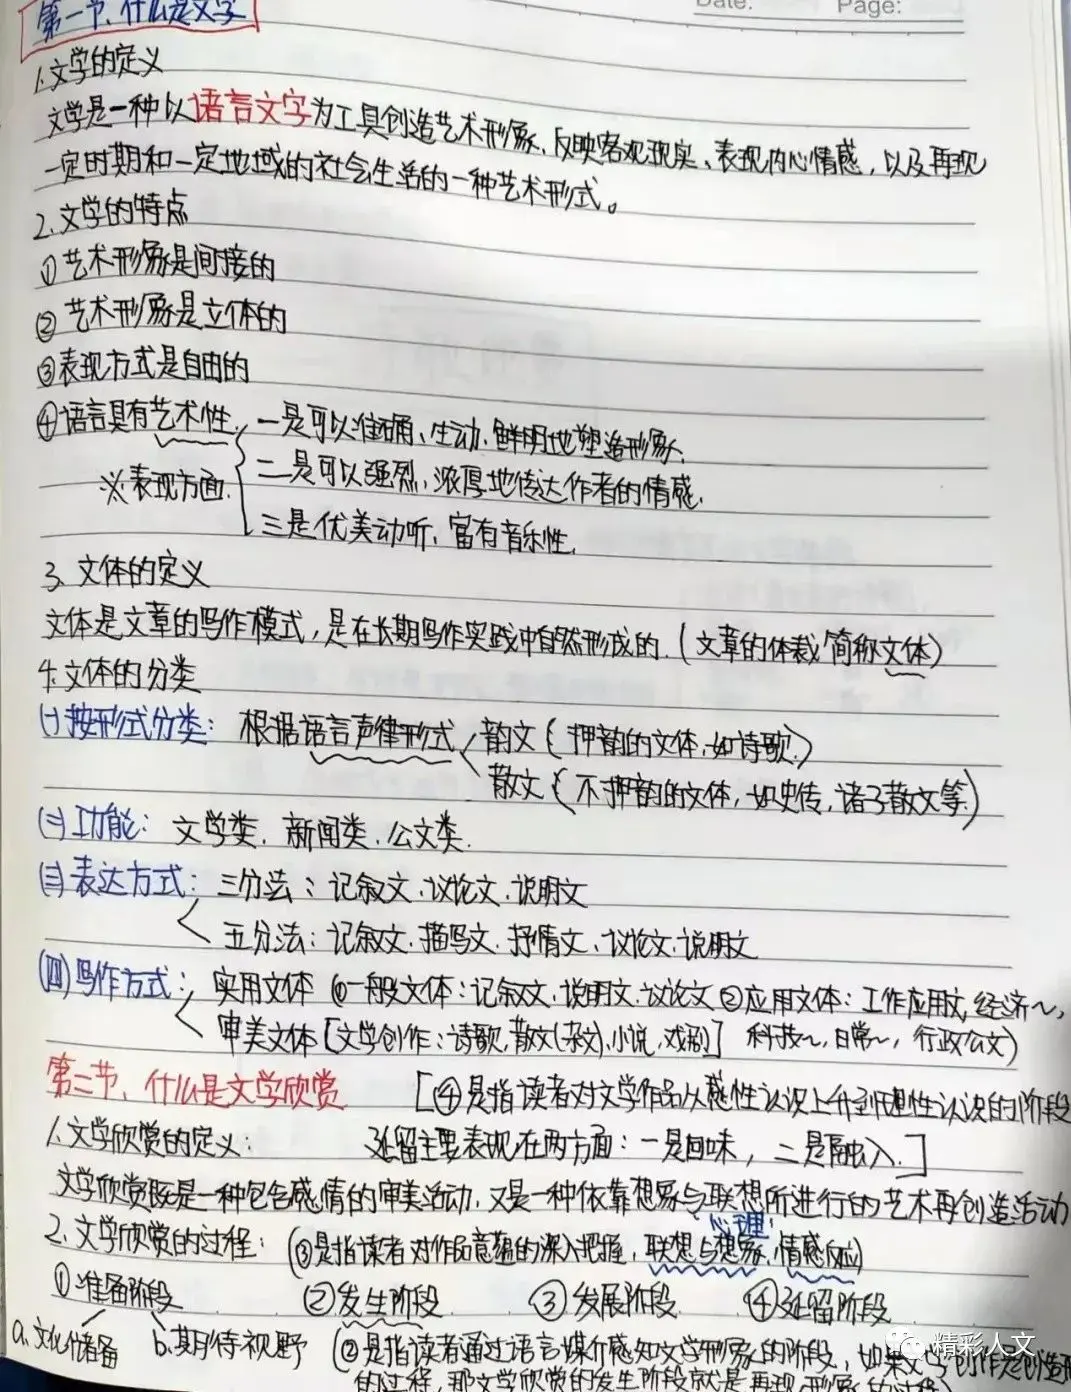 Date: Page:
第一节、什么是文学
1.文学的定义
文学是一种以语言文字为工具创造艺术形象、反映客观现实、表现内心情感，以及再现
一定时期和一定地域的社会生活的一种艺术形式。
2.文学的特点
①艺术形象是间接的
②艺术形象是立体的
③表现方式是自由的
④语言具有艺术性、一是可以准确、生动、鲜明地塑造形象.
※表现方面.二是可以强烈、浓厚地传达作者的情感.
三是优美动听,富有音乐性.
3.文体的定义
文体是文章的写作模式，是在长期写作实践中自然形成的.(文章的体裁简称文体)
4.文体的分类
(一)按形式分类:根据语言声律形式 韵文(押韵的文体,如诗歌.)
散文(不押韵的文体,如史传,诸子散文等)
(二)功能:文学类.新闻类.公文类.
(三)表达方式:三分法:记叙文.议论文.说明文
五分法:记叙文.描写文.抒情文.议论文.说明文
(四)写作方式:实用文体 ①一般文体:记叙文.说明文.议论文②应用文体:工作应用文,经济~,
审美文体[文学创作:诗歌,散文(杂文),小说,戏剧] 科技~,日常~,行政公文)
第二节、什么是文学欣赏 [④是指读者对文学作品从感性认识上升到理性认识的阶段
1.文学欣赏的定义: 延留主要表现在两方面:一是回味，二是融入.]
文学欣赏既是一种包含感情的审美活动,又是一种依靠想象与联想所进行的艺术再创造活动
心理:
2.文学欣赏的过程:(③是指读者对作品意蕴的深入把握,联想与想象,情感反应)
①准备阶段 ②发生阶段 ③发展阶段 ④延留阶段
a.文化储备 b.期待视野 (②是指读者通过语言媒介感知文学形象的阶段，如果文学创作是创造
的过程,那文学欣赏的发生阶段就是再现形象的过程)
精彩人文